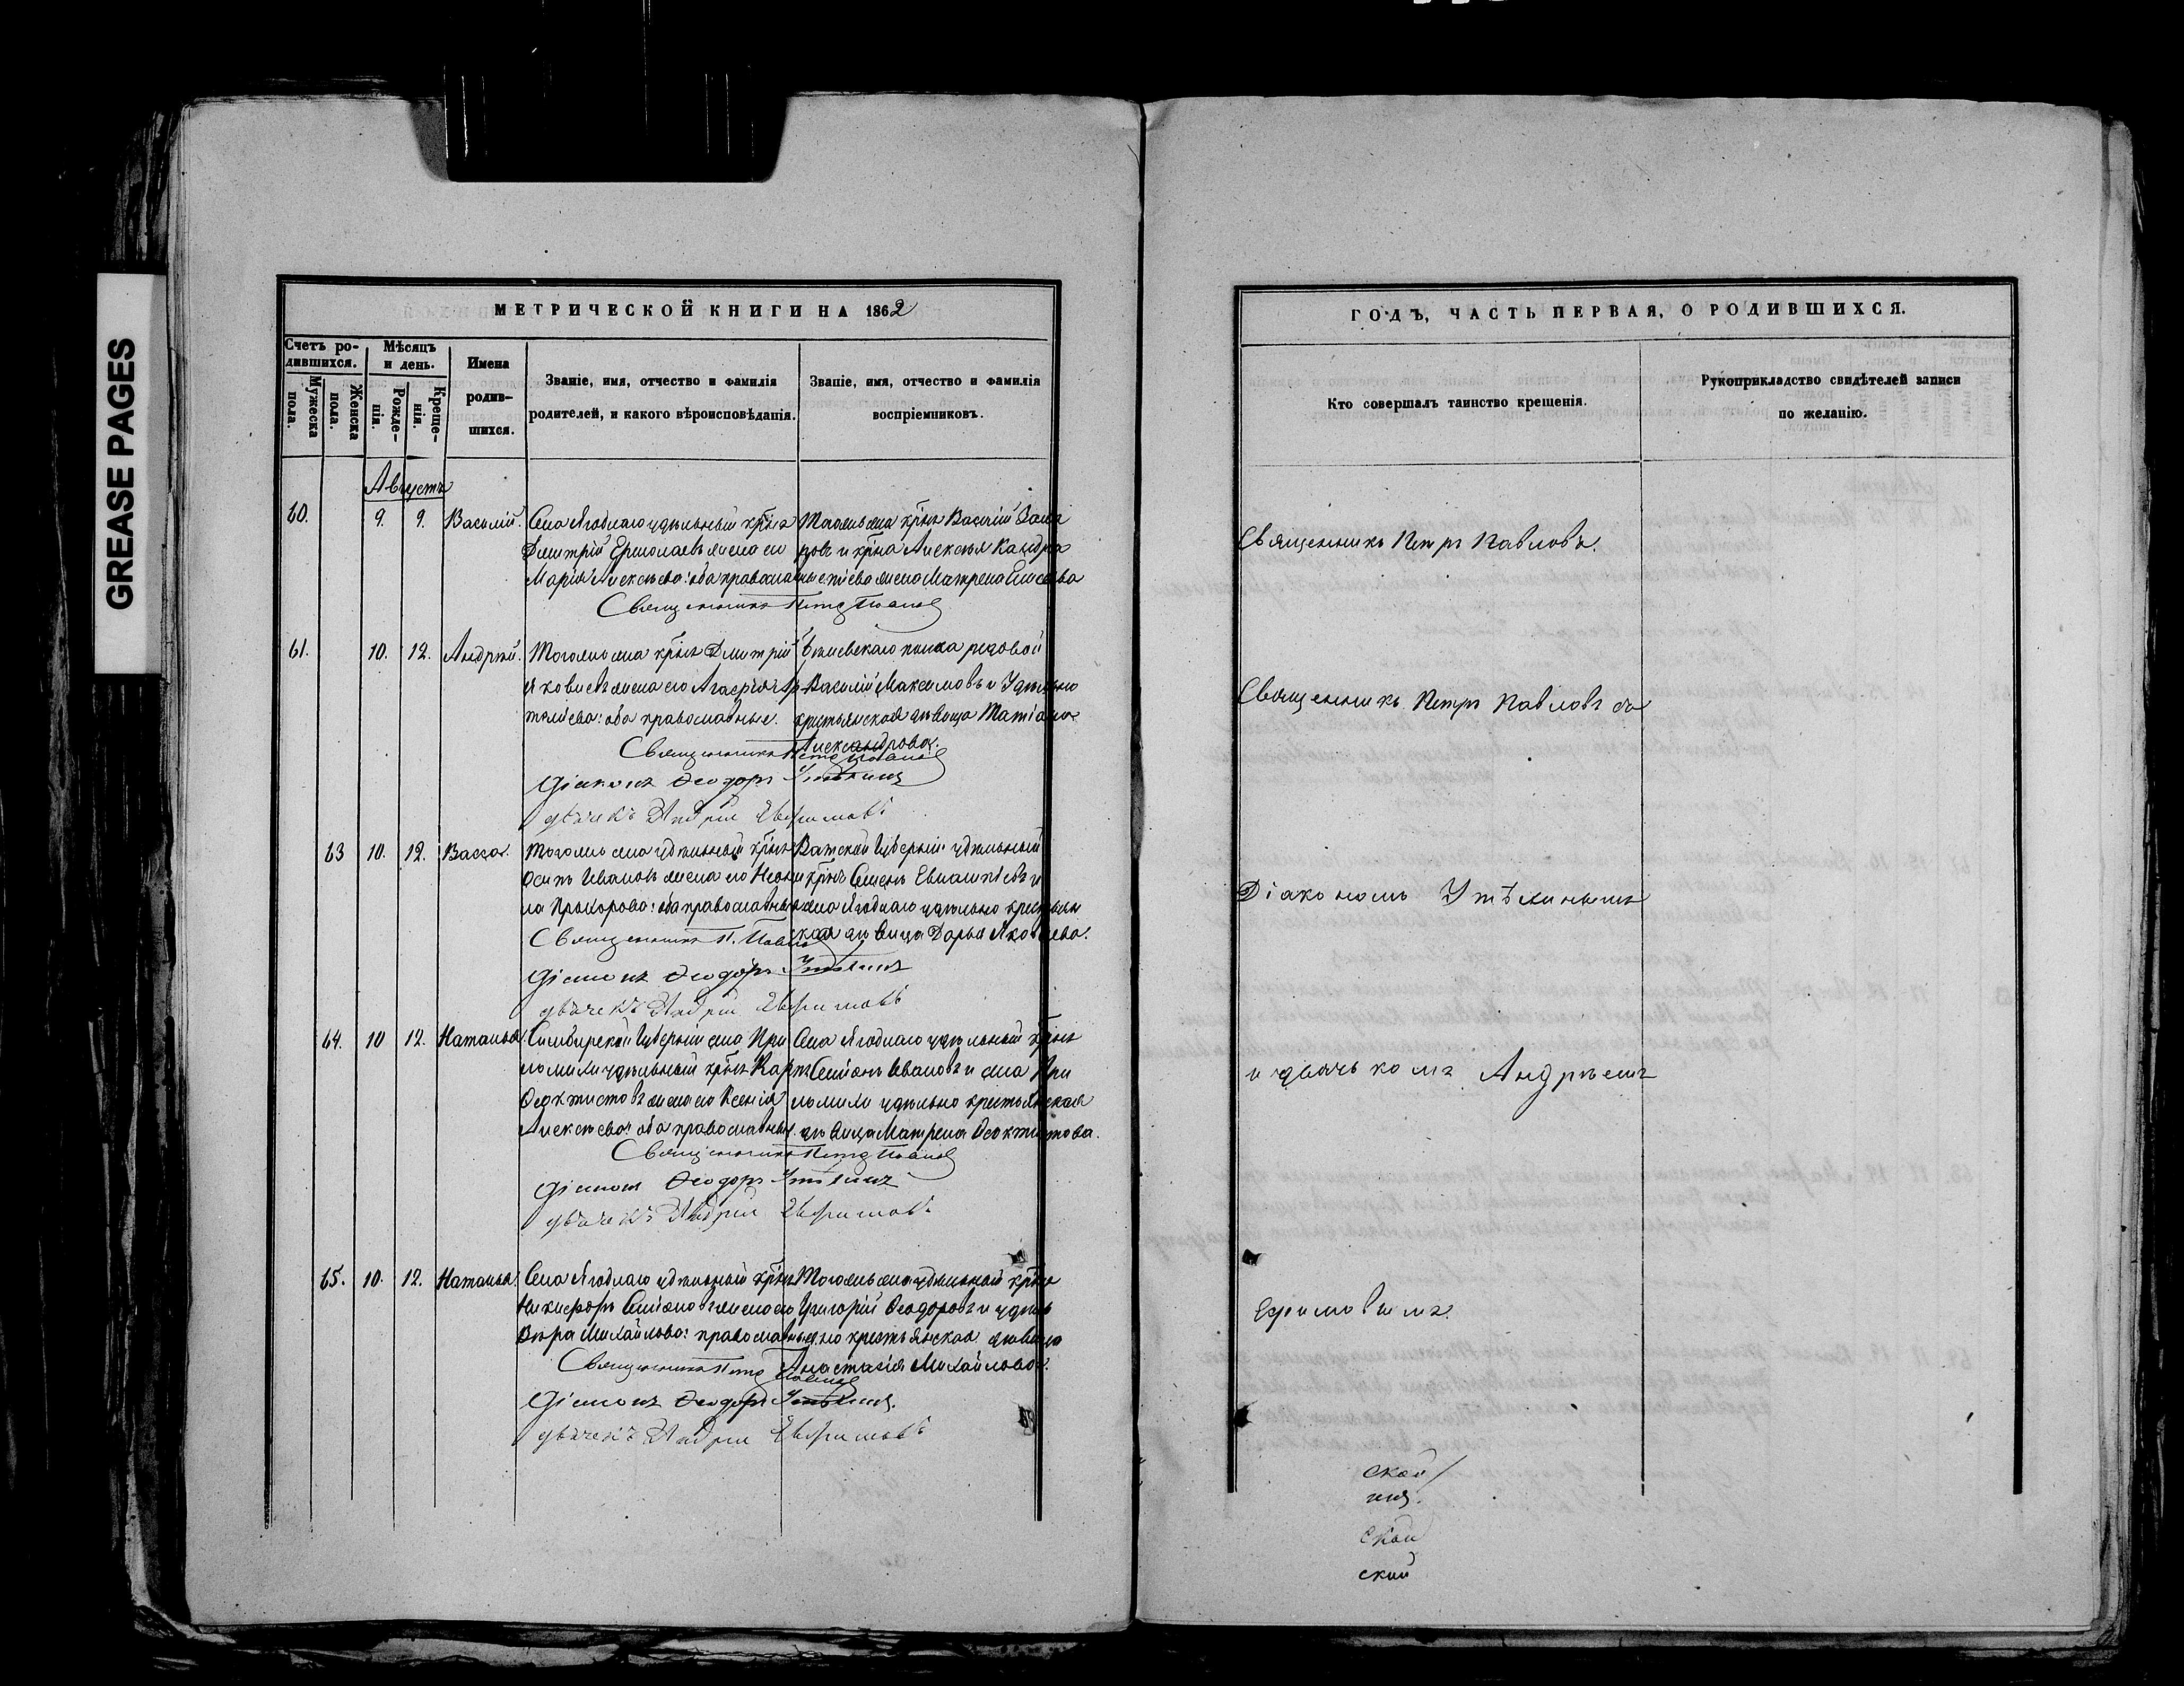 GREASE PAGES
МЕТРИЧЕСКОЙ КНИГИ НА 1862
Счетъ ро-
дившихся.
Мужеска
пола.
Женска
пола.
Мѣсяцъ
и день.
Рожде-
нія.
Креще-
нія.
Имена
родив-
шихся.
Званіе, имя, отчество и фамилія
родителей, и какого вѣроисповѣданія.
Званіе, имя, отчество и фамилія
воспріемниковъ.
Августъ
60. 9. 9. Василій.
Села Ягоднаго удѣльный кр̃нъ
Дмитрій Ермолаевъ жена его
Марія Алексѣева: оба православные
Тогоже села кр̃нъ Василій
и кр̃на Алексѣя
жена Матрена Елисеева
Священникъ Петръ Павловъ
61. 10. 12. Андрей.
Тогоже села кр̃нъ Дмитрій
Яковлевъ жена его Агафія
оба православные.
полка рядовой
Василій Максимовъ и Удѣльно
крестьянская дѣвица Татіана
Александрова.
Священникъ Петръ Павловъ
Діаконъ Ѳеодоръ Утѣхинъ
дьячекъ Андрей Ефимовъ
63 10. 12. Васса.
Тогоже села удѣльный кр̃нъ
Осипъ Ивановъ жена его Неони
ла Прохорова: оба православные
Вятской Губерніи удѣльный
кр̃нъ Семенъ и
села Ягоднаго удѣльно крестьян
ская дѣвица Дарья Яковлева.
Священникъ П. Павловъ
Діаконъ Ѳеодоръ Утѣхинъ
дьячекъ Андрей Ефимовъ
64. 10 12. Наталья
Симбирской Губерніи села При
ломихи удѣльный кр̃нъ Карпъ
Ѳеоктистовъ жена его Ксенія
Алексѣева: оба православные.
Села Ягоднаго удѣльный кр̃нъ
Семенъ Ивановъ и села При
ломихи удѣльно крестьянская
дѣвица Матрена Ѳеоктистова.
Священникъ Петръ Павловъ
Діаконъ Ѳеодоръ Утѣхинъ
дьячекъ Андрей Ефимовъ
65. 10. 12. Наталья.
Села Ягоднаго удѣльный кр̃нъ
Никифоръ Семеновъ жена его
Вѣра Михайлова: православные
Тогоже села удѣльный кр̃нъ
Григорій Ѳеодоровъ и удѣль
но крестьянская дѣвица
Анастасія Михайлова.
Священникъ Петръ Павловъ
Діаконъ Ѳеодоръ Утѣхинъ.
дьячекъ Андрей Ефимовъ
ГОДЪ, ЧАСТЬ ПЕРВАЯ, О РОДИВШИХСЯ.
Кто совершалъ таинство крещенія.
Рукоприкладство свидѣтелей записи
по желанію.
Священникъ Петръ Павловъ.
Священникъ Петръ Павловъ съ
Діакономъ Утѣхинымъ
и дьячькомъ Андреемъ
Ефимовымъ.
ской
ской
ской